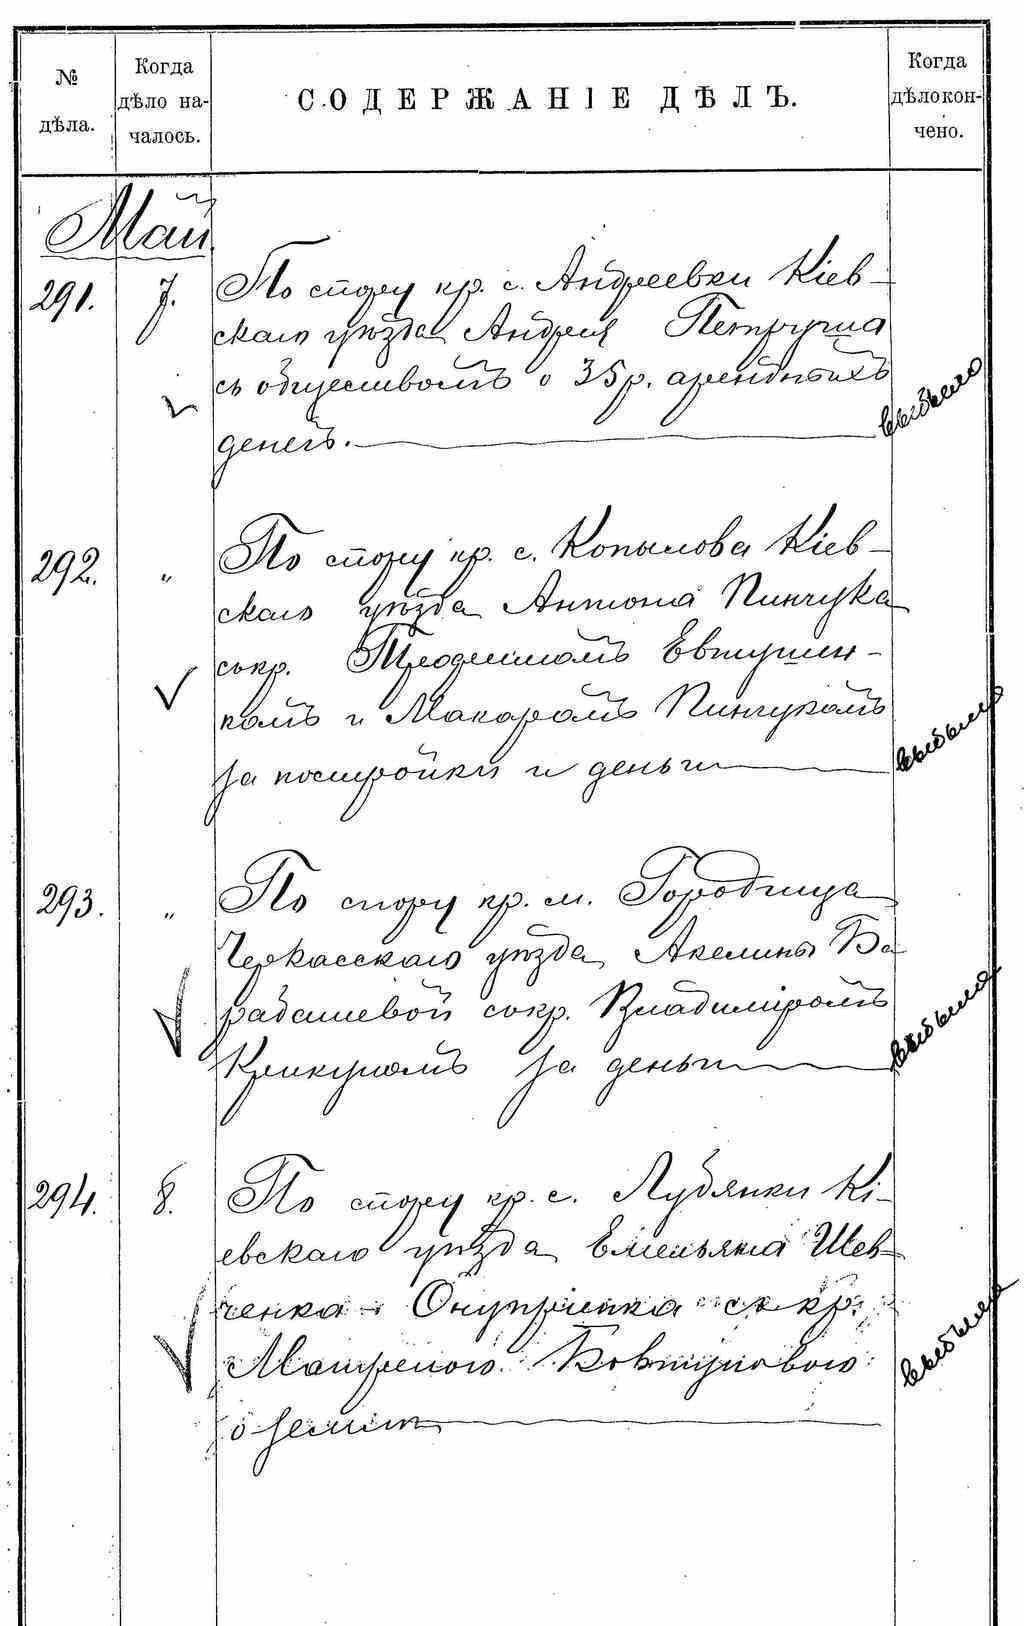 № дѣла.
Когда дѣло на-чалось.
СОДЕРЖАНІЕ ДѢЛЪ.
Когда дѣло кон-чено.
Май
291. 7. По спору кр. с. Андреевки Кіев-
скаго уѣзда Андрея Петруша
съ обществомъ о 35 р. арендныхъ
денегъ. выбыло
292. „ По спору кр. с. Копылова Кіев-
скаго уѣзда Антона Пинчука
съ кр. Евтушен-
комъ и Макаромъ Пинчукомъ
за постройки и деньги выбыло
293. „ По спору кр. м. Городища
Черкасскаго уѣзда Акелины Ба
рабашевой съ кр. Владиміромъ
Крикуномъ за деньги выбыло
294. 8. По спору кр. с. Лубянки Кі-
евскаго уѣзда Емельяна Шев-
ченка Онупріенка съ кр.
Матреною Ковтуновою
о землѣ выбыло